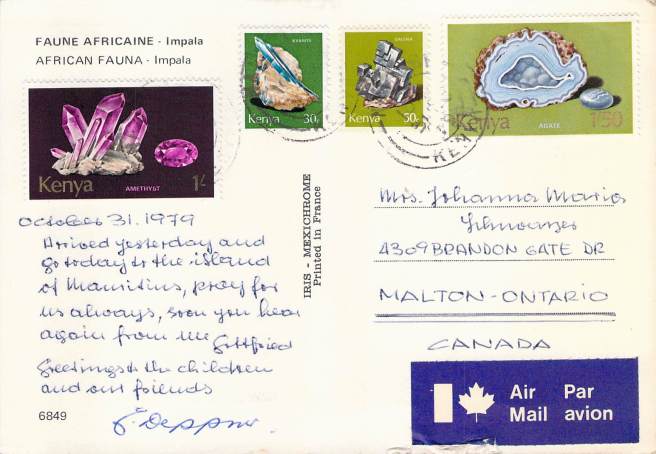 FAUNE AFRICAINE - Impala
AFRICAN FAUNA - Impala
KYANITE
Kenya 30c
GALENA
Kenya 50c
AGATE
Kenya 1'50
AMETHYST
Kenya 1/-
October 31. 1979
Arrived yesterday and
go today to the island
of Mauritius, pray for
us always, soon you hear
again from me Gottfried
Greetings to the children
and our friends
6849
IRIS - MEXICHROME
Printed in France
Mrs. Johanna Maria
4309 BRANDON GATE DR
MALTON - ONTARIO
CANADA
Air Par
Mail avion